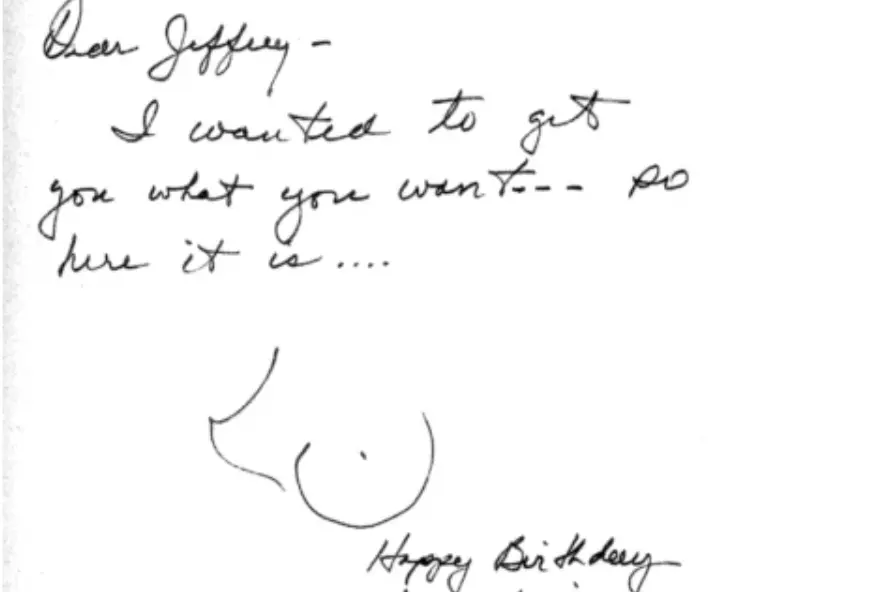 Dear Jeffrey -
I wanted to get
you what you want--- so
here it is....
Happy Birthday